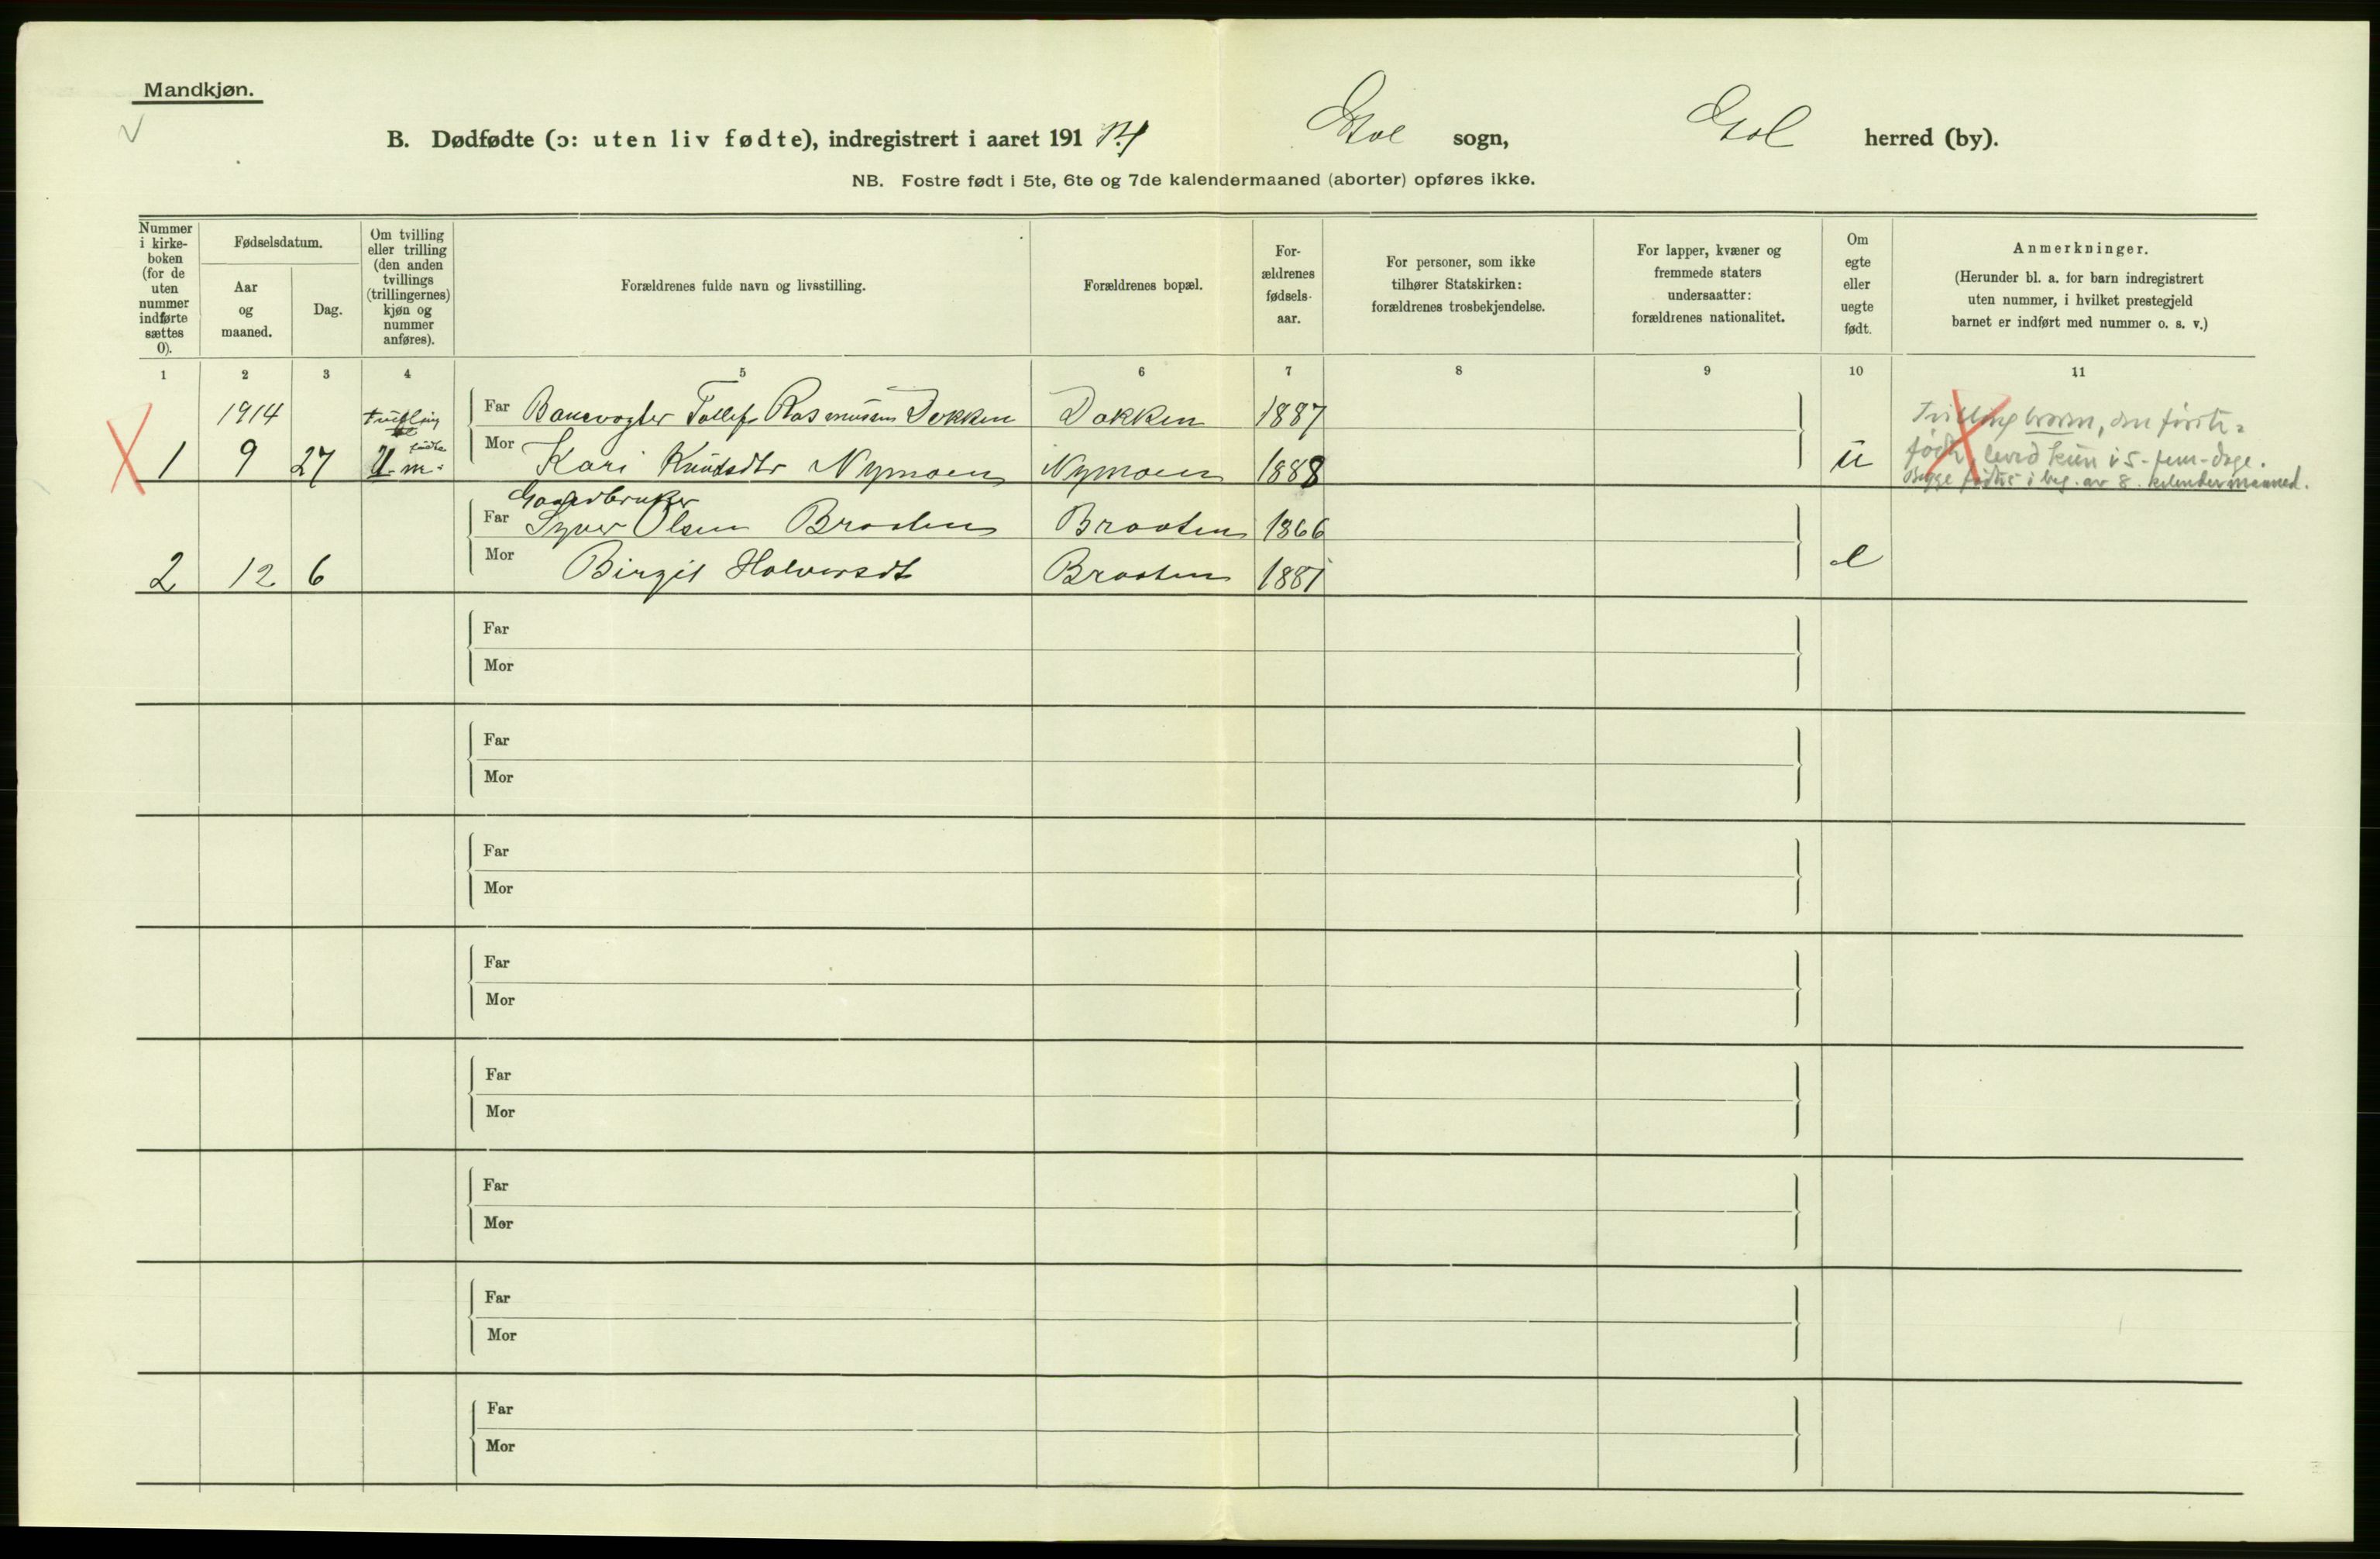 Mandkjøn.
B. Dødfødte (ɔ: uten liv fødte), indregistrert i aaret 1914 Gol sogn, Gol herred (by).
NB. Fostre født i 5te, 6te og 7de kalendermaaned (aborter) opføres ikke.
Nummer i kirke-boken (for de uten nummer indførte sættes 0).
Fødselsdatum.
Aar og maaned.
Dag.
Om tvilling eller trilling (den anden tvillings (trillingernes) kjøn og nummer anføres).
Forældrenes fulde navn og livsstilling.
Forældrenes bopæl.
For-ældrenes fødsels-aar.
For personer, som ikke tilhører Statskirken: forældrenes trosbekjendelse.
For lapper, kvæner og fremmede staters undersaatter: forældrenes nationalitet.
Om egte eller uegte født.
Anmerkninger.
(Herunder bl. a. for barn indregistrert uten nummer, i hvilket prestegjeld barnet er indført med nummer o. s. v.)
1 2 3 4 5 6 7 8 9 10 11
1914 tvilling Far Banevogter Tollef Rasmussen Dokken Dokken 1887
1 9 27 m. Mor Kari Knudsdtr Nymoen Nymoen 1888 u
Tvilling barn, den første
født levd kun i 5 - fem - dage.
Begge fødtes i beg. av 8. kalendermaaned.
Gaardbruker
Far Syver Olsen Braaten Braaten 1866
2 12 6 Mor Birgit Halvorsdt Braaten 1881 e
Far
Mor
Far
Mor
Far
Mor
Far
Mor
Far
Mor
Far
Mor
Far
Mor
Far
Mor